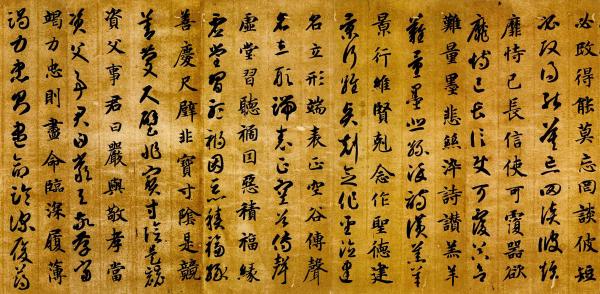 必改得能莫忘罔談彼短
必改得能莫忘罔談彼短
靡恃己長信使可覆器欲
靡恃己長信使可覆器欲
難量墨悲絲淬詩讚羔羊
難量墨悲絲淬詩讚羔羊
景行維賢剋念作聖德建
景行維賢剋念作聖德建
名立形端表正空谷傳聲
名立形端表正空谷傳聲
虛堂習聽禍因惡積福緣
虛堂習聽禍因惡積福緣
善慶尺璧非寶寸陰是競
善慶尺璧非寶寸陰是競
資父事君曰嚴與敬孝當
資父事君曰嚴與敬孝當
竭力忠則盡命臨深履薄
竭力忠則盡命臨深履薄